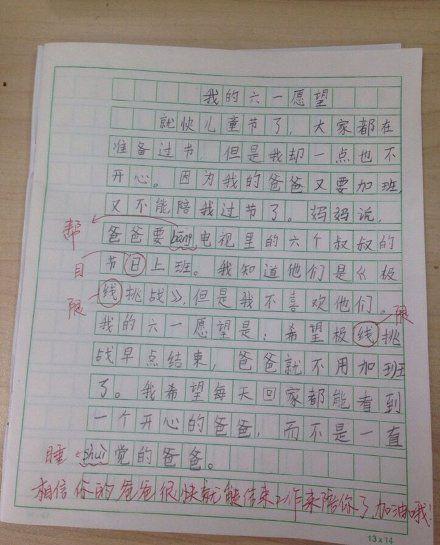 我的六一愿望
就快儿童节了，大家都在
准备过节，但是我却一点也不
开心。因为我的爸爸又要加班，
又不能陪我过节了。妈妈说，
帮
爸爸要bāng电视里的六个叔叔的
目
节日上班。我知道他们是《极
限
线挑战》，但是我不喜欢他们。
限
我的六一愿望是：希望极线挑
战早点结束，爸爸就不用加班
了。我希望每天回家都能看到
一个开心的爸爸，而不是一直
睡
shuì觉的爸爸。
相信你的爸爸很快就能结束工作来陪你了加油哦！
13×14